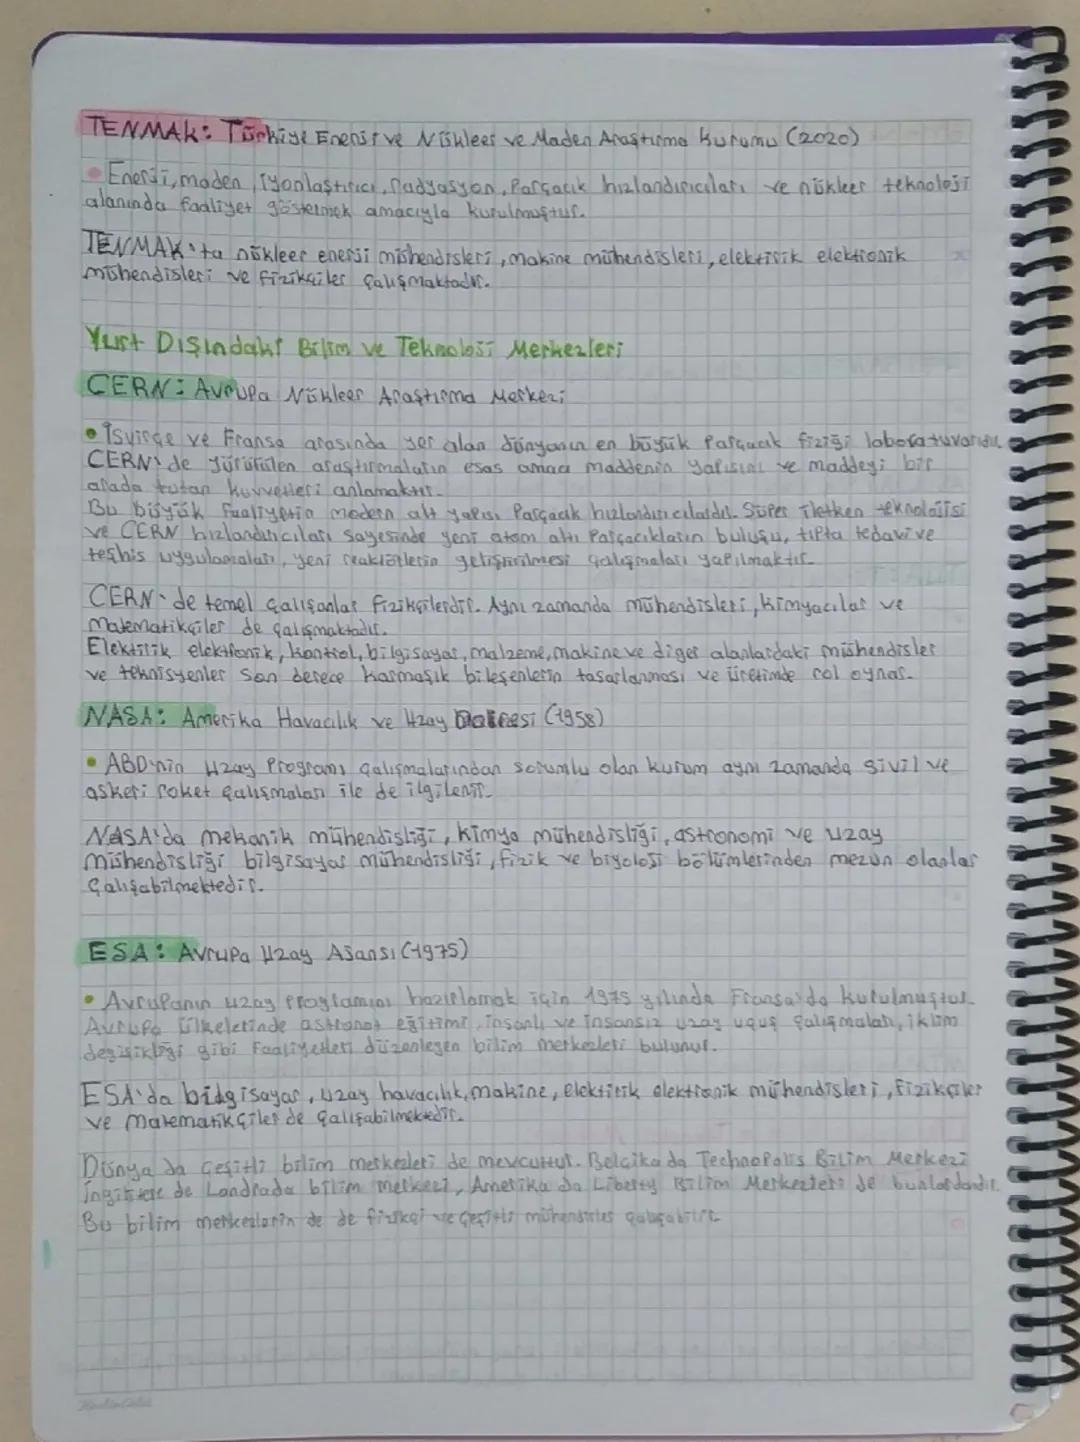 TENMAK: Türkiye Enerji ve Nükleer ve Maden Araştırma Kurumu (2020)
• Enerji, maden, iyonlaştırıcı, radyasyon, Parçacık hızlandırıcıları ve nükleer teknoloji
alanında faaliyet göstermek amacıyla kurulmuştur.
TENMAK'ta nükleer enerji mühendisleri, makine mühendisleri, elektirik elektronik
mühendisleri ve fizikçiler çalışmaktadır.
Yurt Dışındaki Bilim ve Teknoloji Merkezleri
CERN: Avrupa Nükleer Araştırma Merkezi
• İsviçre ve Fransa arasında yer alan dünyanın en büyük Parçacık fiziği laboratuvarıdır.
CERN'de yürütülen araştırmaların esas amacı maddenin yapısını ve maddeyi bir
arada tutan kuvvetleri anlamaktır.
Bu büyük faaliyetin modern alt yapısı Parçacık hızlandırıcılardır. Süper iletken teknolojisi
ve CERN hızlandırıcıları sayesinde yeni atom altı Parçacıkların buluşu, tıpta tedavi ve
teşhis uygulamaları, yeni reaktörlerin geliştirilmesi çalışmaları yapılmaktır.
CERN'de temel çalışanlar fizikçilerdir. Aynı zamanda mühendisleri, kimyacılar ve
matematikçiler de çalışmaktadır.
Elektirik elektronik, kontrol, bilgisayar, malzeme, makine ve diğer alanlardaki mühendisler
ve teknisyenler son derece karmaşık bileşenlerin tasarlanması ve üretimde rol oynar.
NASA: Amerika Havacılık ve Uzay Dairesi (1958)
• ABD'nin Uzay Programı çalışmalarından sorumlu olan kurum aynı zamanda sivil ve
askeri roket çalışmaları ile de ilgilenir.
NASA'da mekanik mühendisliği, kimya mühendisliği, astronomi ve uzay
mühendisliği bilgisayar mühendisliği, fizik ve biyoloji bölümlerinden mezun olanlar
çalışabilmektedir.
ESA: Avrupa Uzay Ajansı (1975)
• Avrupanın uzay programını hazırlamak için 1975 yılında Fransa'da kurulmuştur.
Avrupa ülkelerinde astronot eğitimi, insanlı ve insansız uzay uçuş çalışmaları, iklim
değişikliği gibi faaliyetleri düzenleyen bilim merkezleri bulunur.
ESA'da bidgisayar, uzay havacılık, makine, elektirik elektronik mühendisleri, fizikçiler
ve matematikçiler de çalışabilmektedir.
Dünya da çeşitli bilim merkezleri de mevcuttur. Belçika da TechnoPolis Bilim Merkezi
İngiltere de Londrada bilim merkezi, Amerika da Liberty Bilim Merkezleri de bunlardandır.
Bu bilim merkezlerin de de fizikçi ve çeşitli mühendisler çalışabilir.